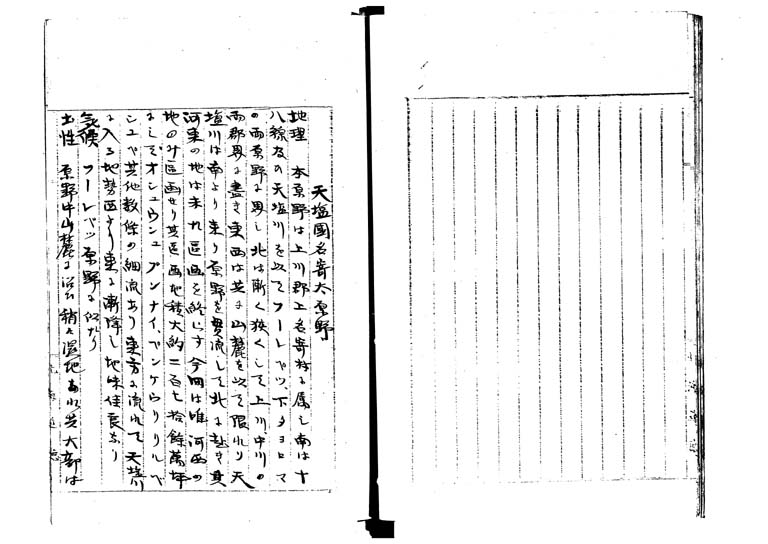 天塩國名寄太原野
地理　本原野は上川郡上名寄村に属し南は十
八線及の天塩川を以てフーレベツ、下タヨロマ
の両原野に界し北は漸く狭くして上川中川の
両郡界に盡き東西は共に山麓を以て限れり天
塩川は南より来り原野を貫流して北に赴き其
河東の地は未た區画を終らす今回は唯河西の
地のみ區画せり其區画地積大約二百七拾餘萬坪
にしてオシュウンユプンナイ、ペンケウリリルペ
シユペ其他数條の細流あり東方に流れて天塩川
に入る地勢西より東に漸降し地味佳良なり
気候　フーレベツ原野に仝なり
土性　原野中山麓に沿ひ稍々濕地あれ共大部は